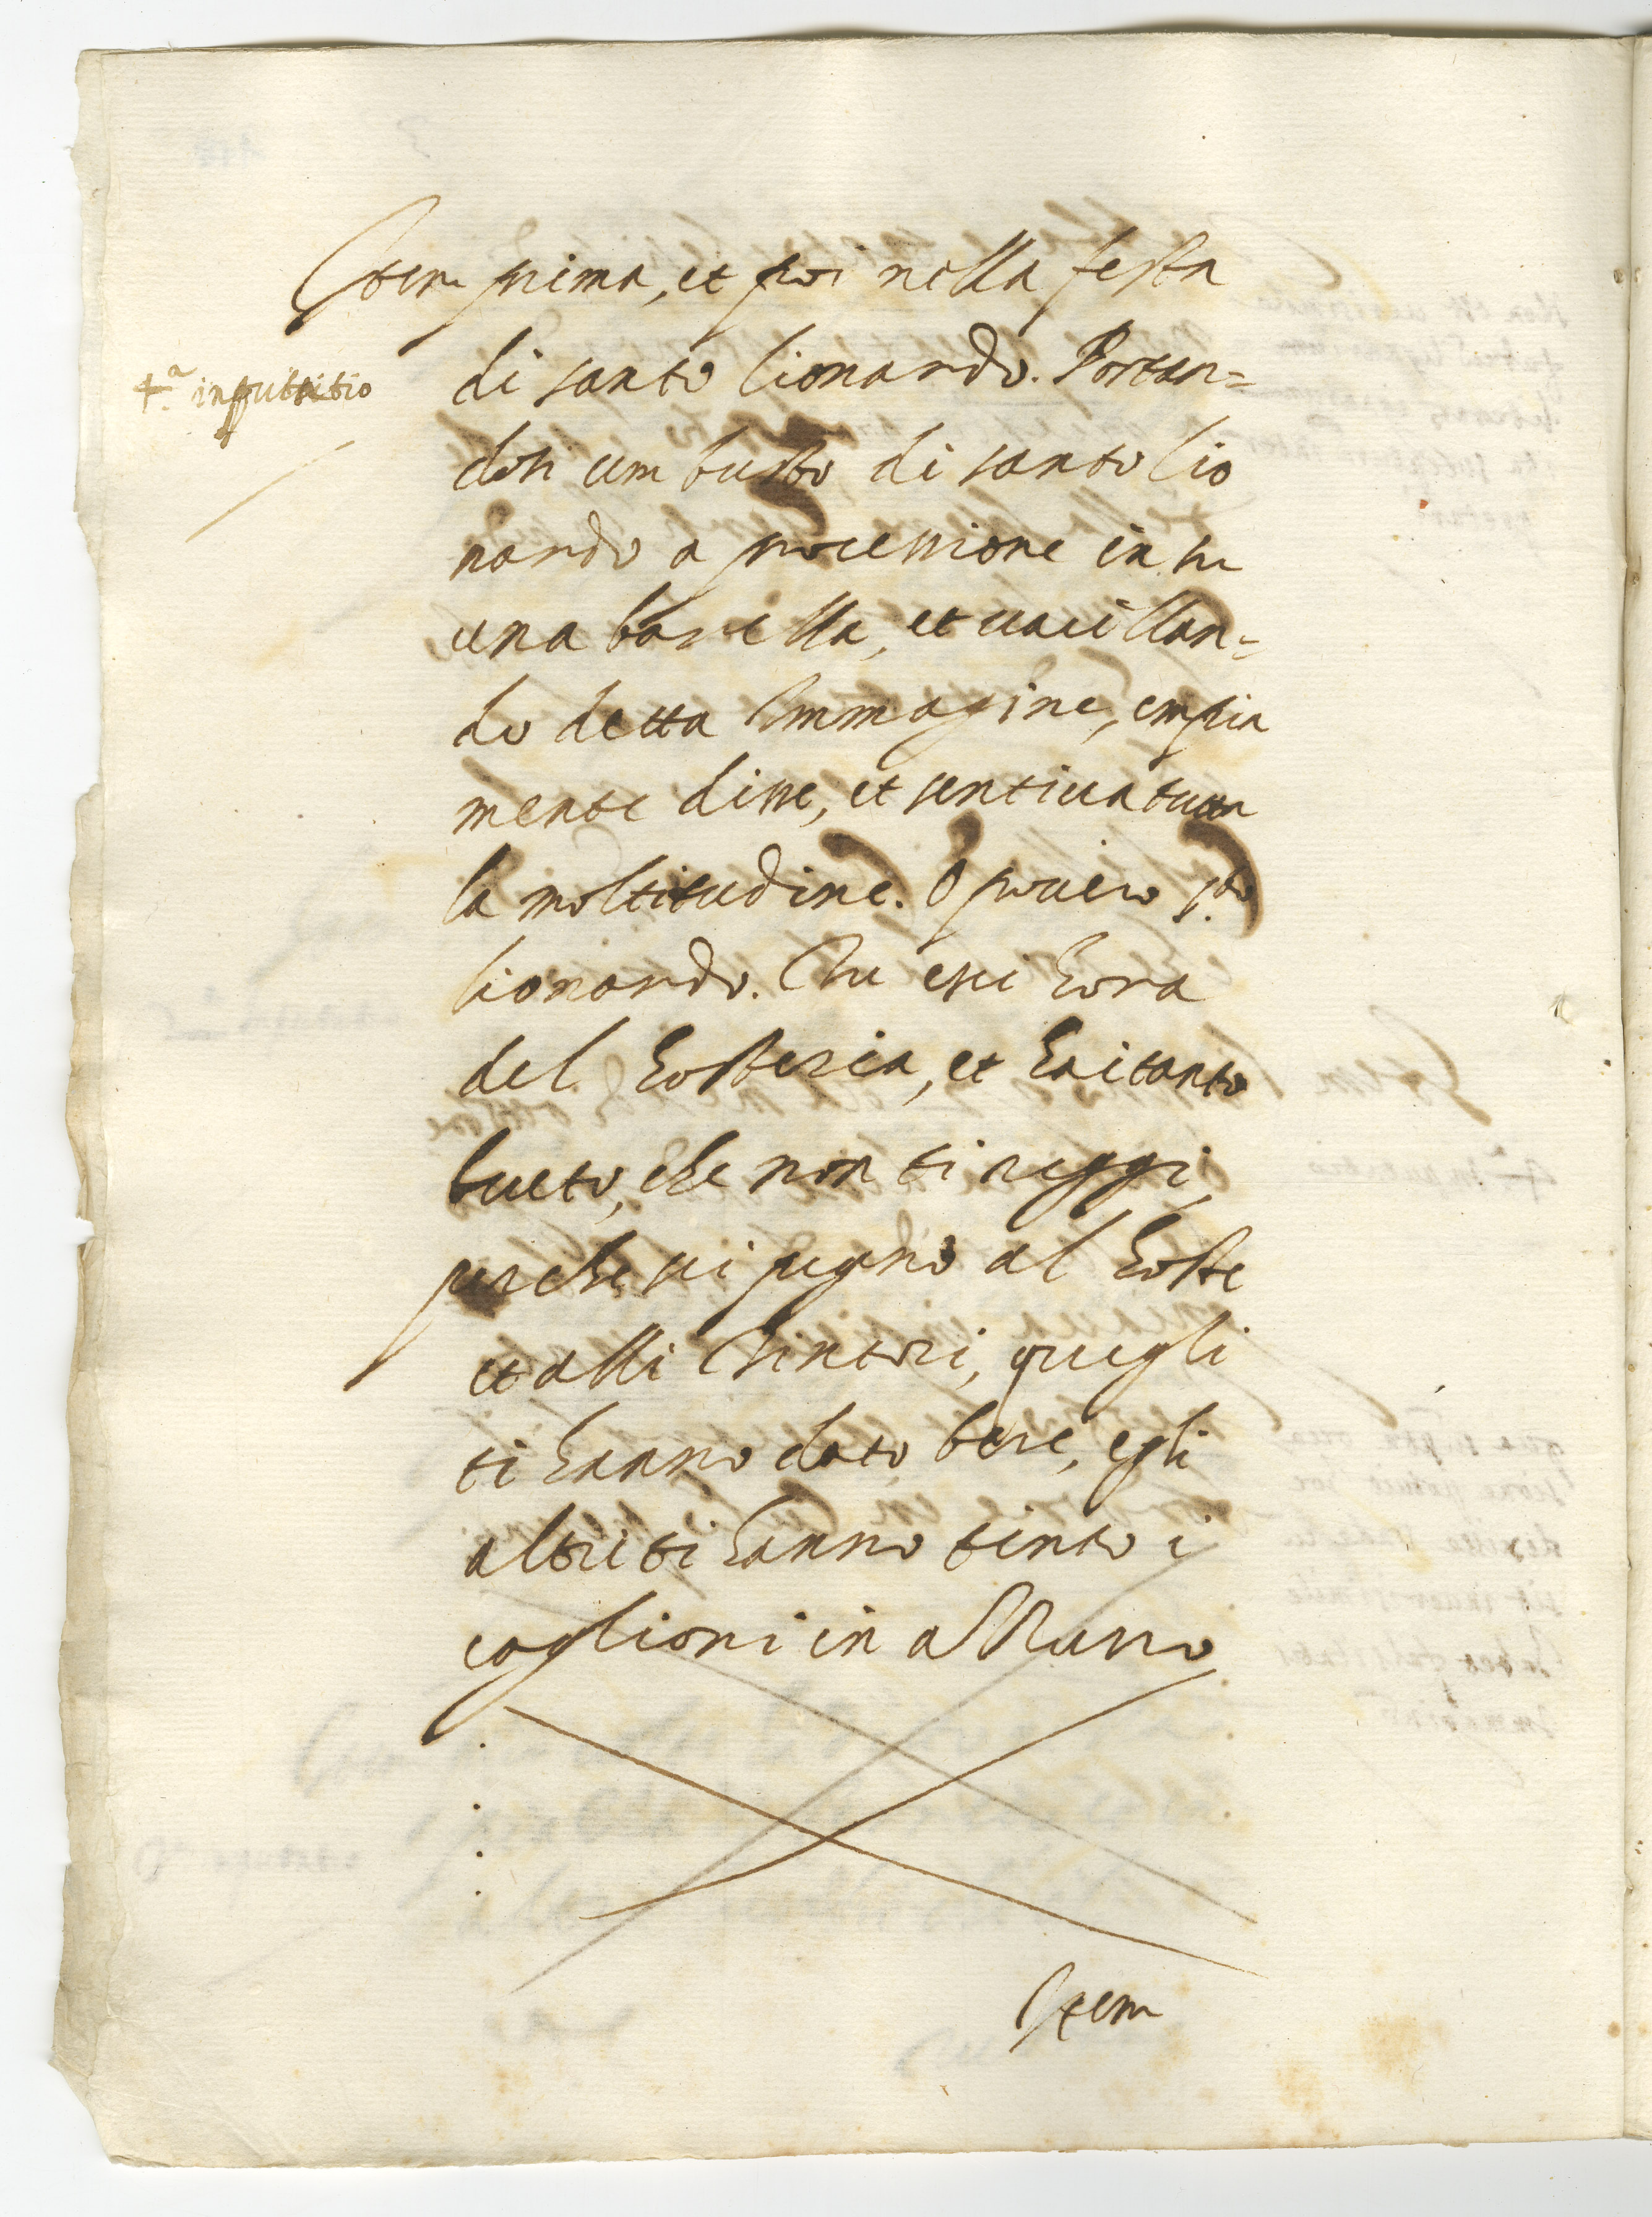 Item prima, et poi nella festa
4.ª inputatio
di santo Lionardo. Portan=
dosi um busto di santo Lio
nardo a processione in su
una barella, et uacillan=
do detta Immagine, empia
mente disse, et sentiua tutta
la moltitudine. O pouero s.to
Lionardo. Tu esci hora
del hosteria, et hai tanto
beuto, che non ti reggi,
perche sei pegno al hoste
et alli Tintori, quegli
ti hanno dato bere, egli
altri ti hanno tinto i
coglioni in
Item